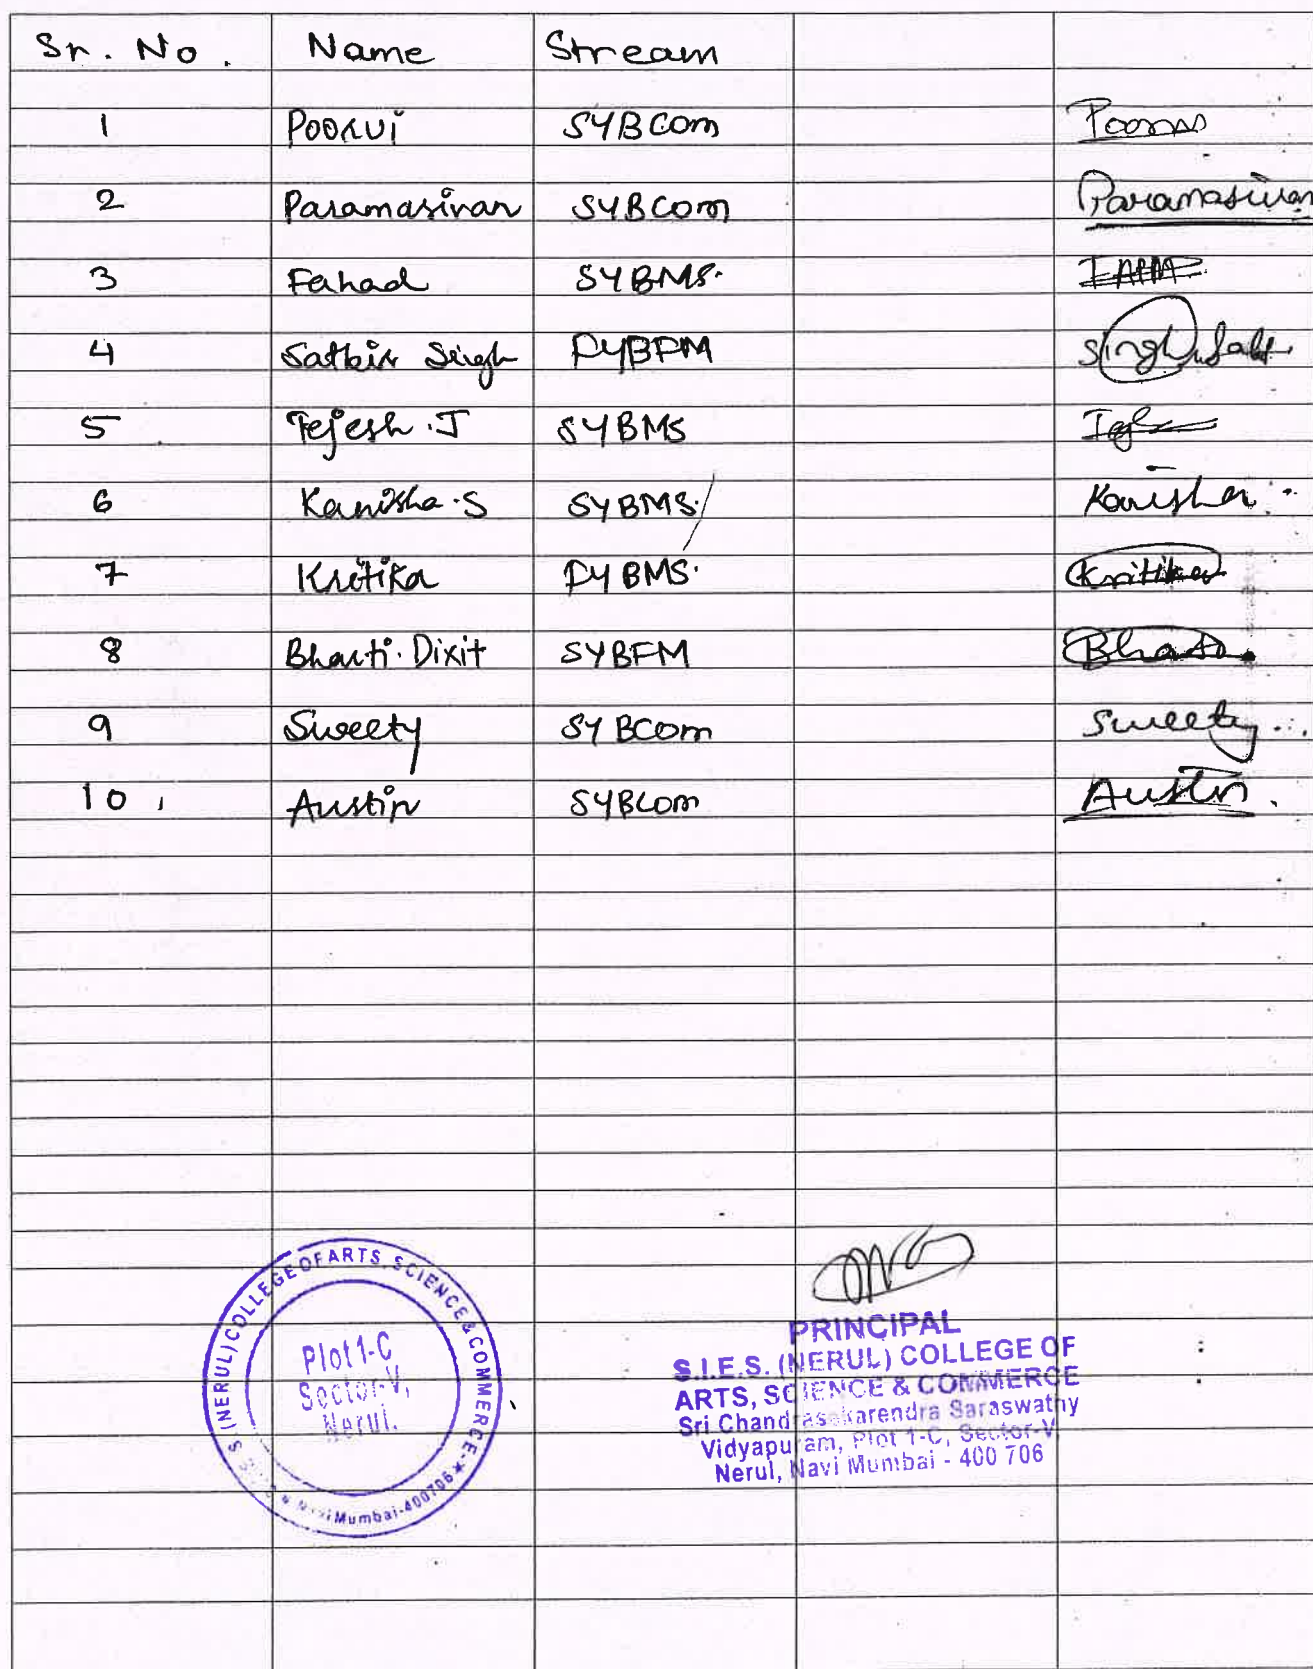 Sr. No. Name Stream
1 Poorvi SYBCom
2 Paramasivan SYBCom Paramasivan
3 Fahad SYBMS.
4 Satbir Singh FYBFM Singh
5 Tejesh.J SYBMS
6 Kanisha.S SYBMS. Kanisha
7 Kritika FYBMS. Kritika
8 Bharti.Dixit SYBFM
9 Sweety SYBCom Sweety
10, Austin SYBCom Austin.
S (NERUL) COLLEGE OF ARTS, SCIENCE & COMMERCE.★
Plot 1-C
Sector-V,
Nerul.
Navi Mumbai-400706★
PRINCIPAL
S.I.E.S. (NERUL) COLLEGE OF
ARTS, SCIENCE & COMMERCE
Sri Chandrasekarendra Saraswathy
Vidyapuram, Plot 1-C, Sector-V
Nerul, Navi Mumbai - 400 706